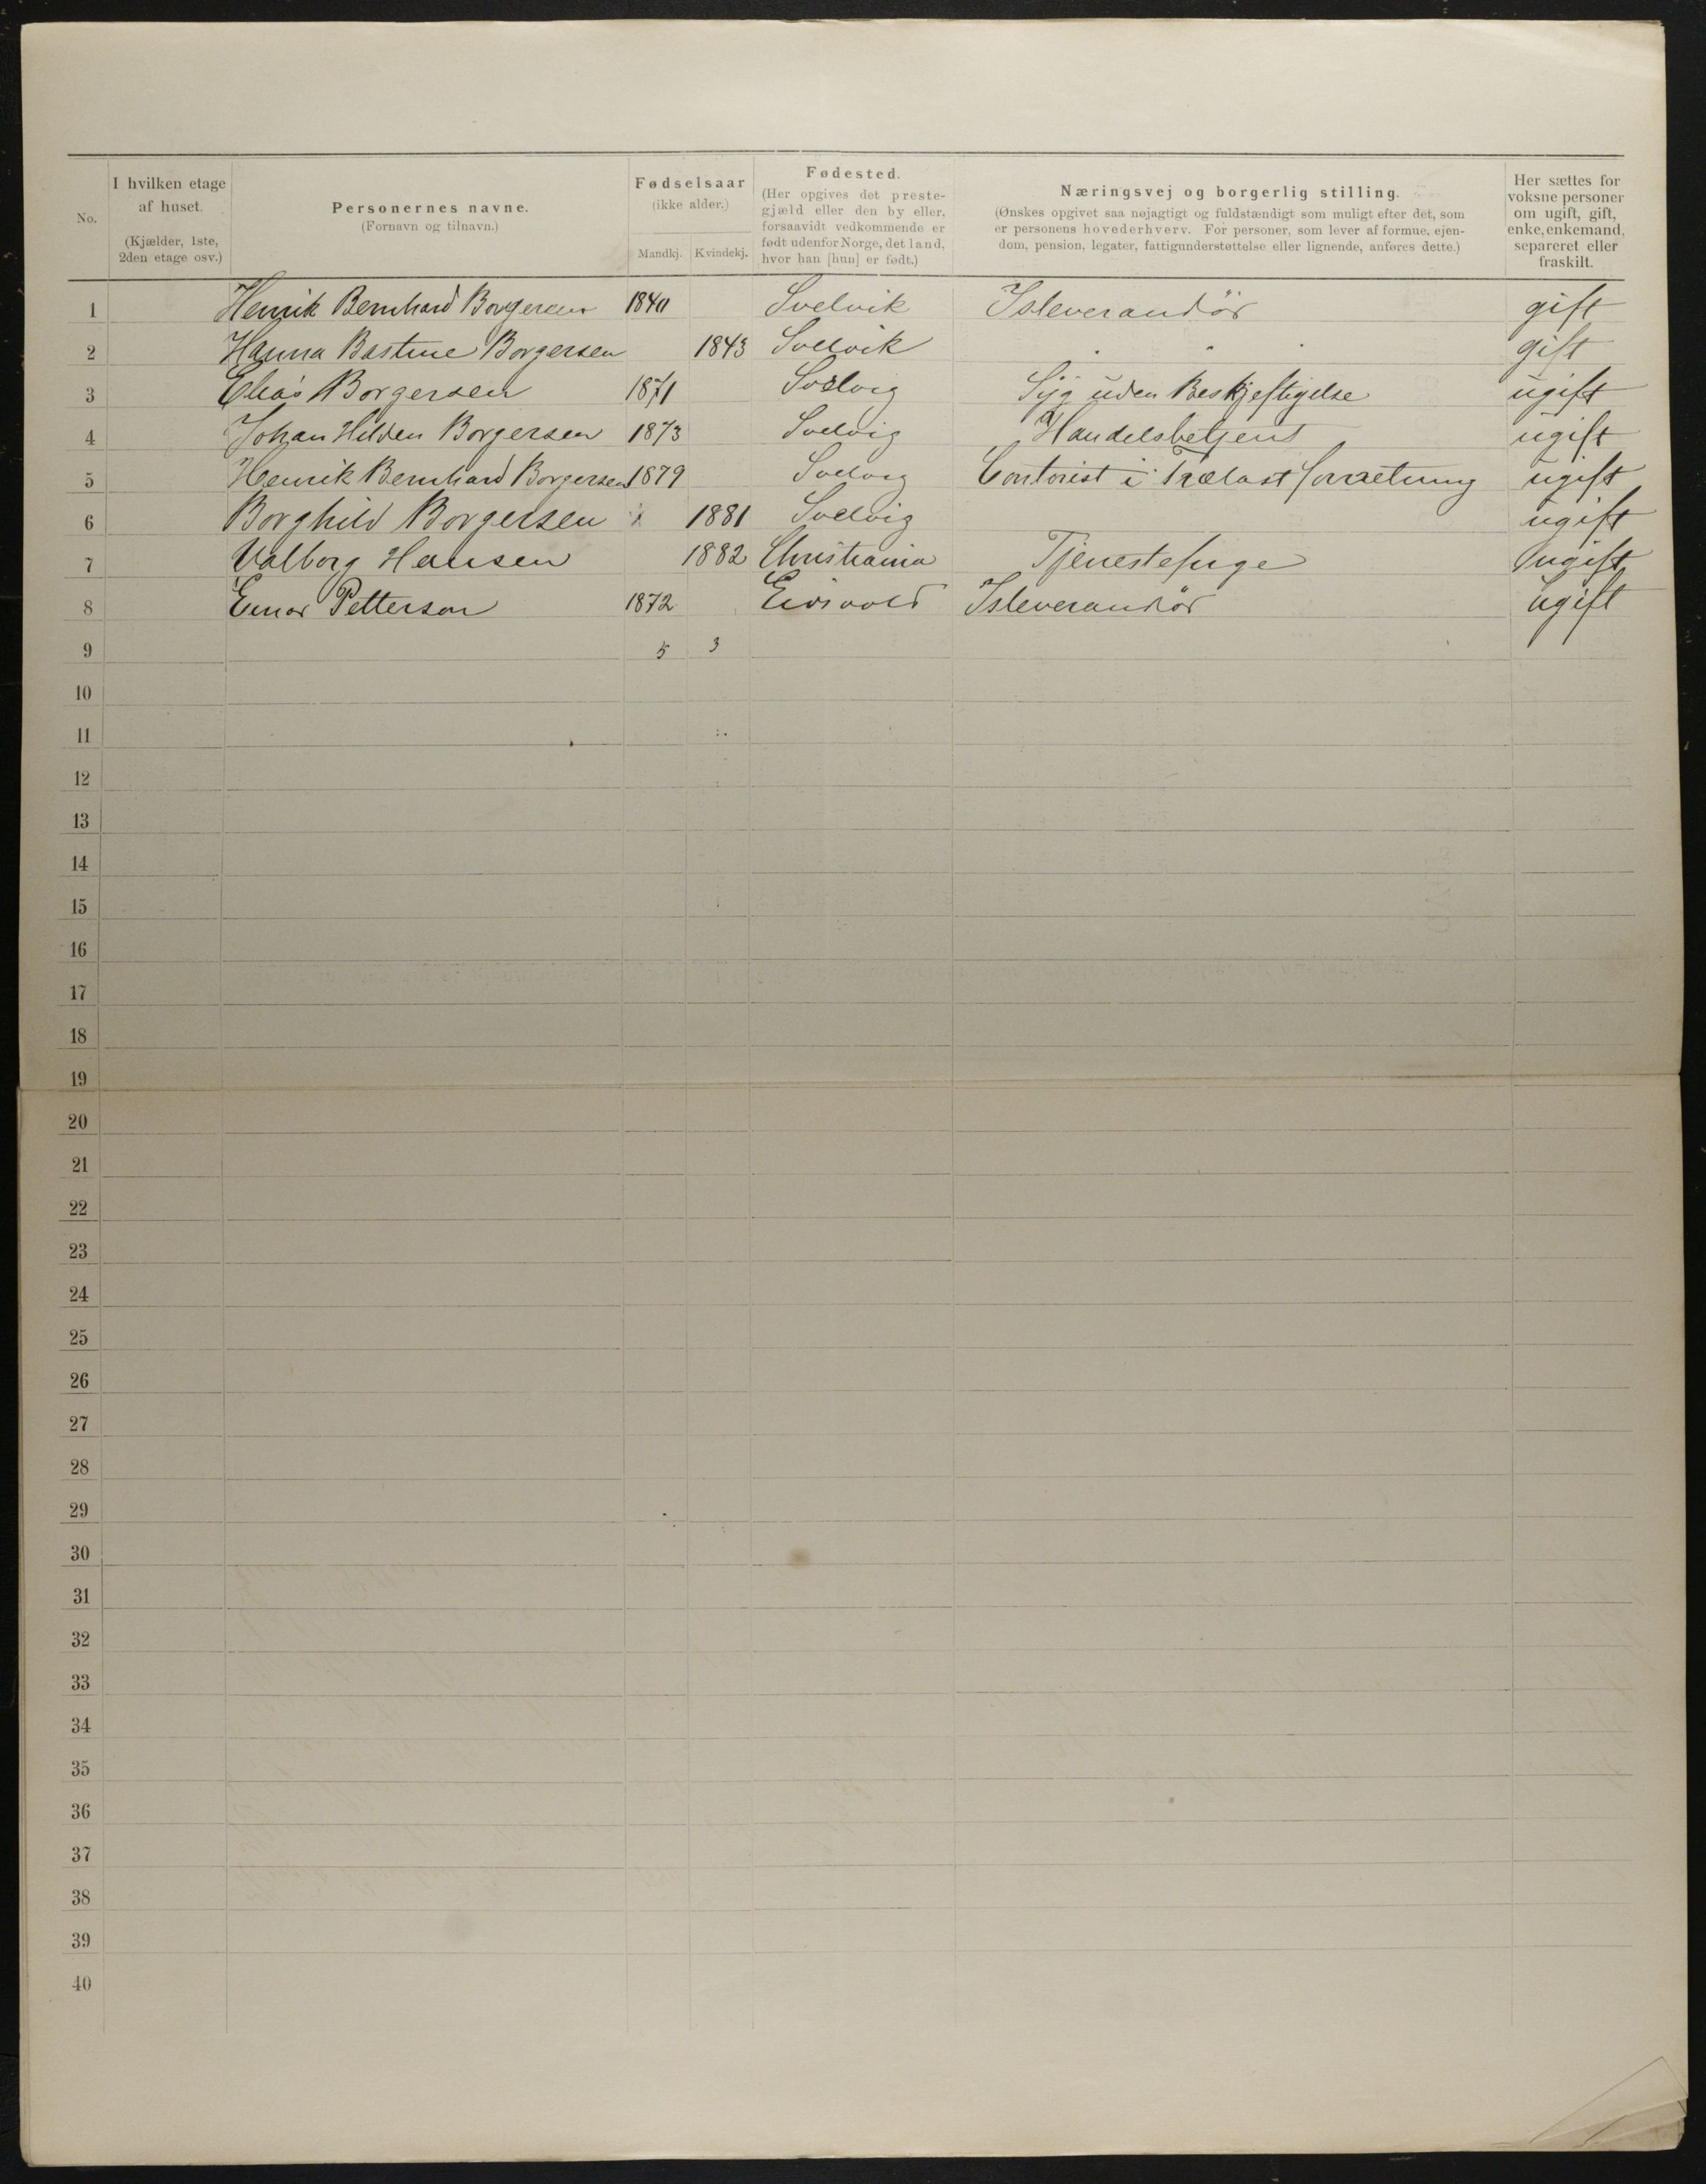 No.
I hvilken etage af huset. (Kjælder, 1ste, 2den etage osv.)
Personernes navne. (Fornavn og tilnavn.)
Fødselsaar (ikke alder.)
Mandkj. Kvindekj.
Fødested. (Her opgives det prestegjæld eller den by eller, forsaavidt vedkommende er født udenfor Norge, det land, hvor han [hun] er født.)
Næringsvej og borgerlig stilling.
(Ønskes opgivet saa nøjagtigt og fuldstændigt som muligt efter det, som er personens hovederhverv. For personer, som lever af formue, ejendom, pension, legater, fattigunderstøttelse eller lignende, anføres dette.)
Her sættes for voksne personer om ugift, gift, enke, enkemand, separeret eller fraskilt.
1 Henrik Bernhard Borgersen 1840 Svelvik Isleverandör gift
2 Hanna Bastine Borgersen 1843 Svelvik " " " gift
3 Elias Borgersen 1871 Svelvig Syg uden Beskjeftigelse ugift
4 Johan Hilden Borgersen 1873 Svelvig Handelsbetjent ugift
5 Henrik Bernhard Borgersen 1879 Svelvig Contorist i Trælastforretning ugift
6 Borghild Borgersen 1881 Svelvig ugift
7 Valborg Hansen 1882 Christiania Tjenestepige ugift
8 Einar Petterson 1872 Eidsvold Isleverandör ugift
9 5 3
10
11
12
13
14
15
16
17
18
19
20
21
22
23
24
25
26
27
28
29
30
31
32
33
34
35
36
37
38
39
40